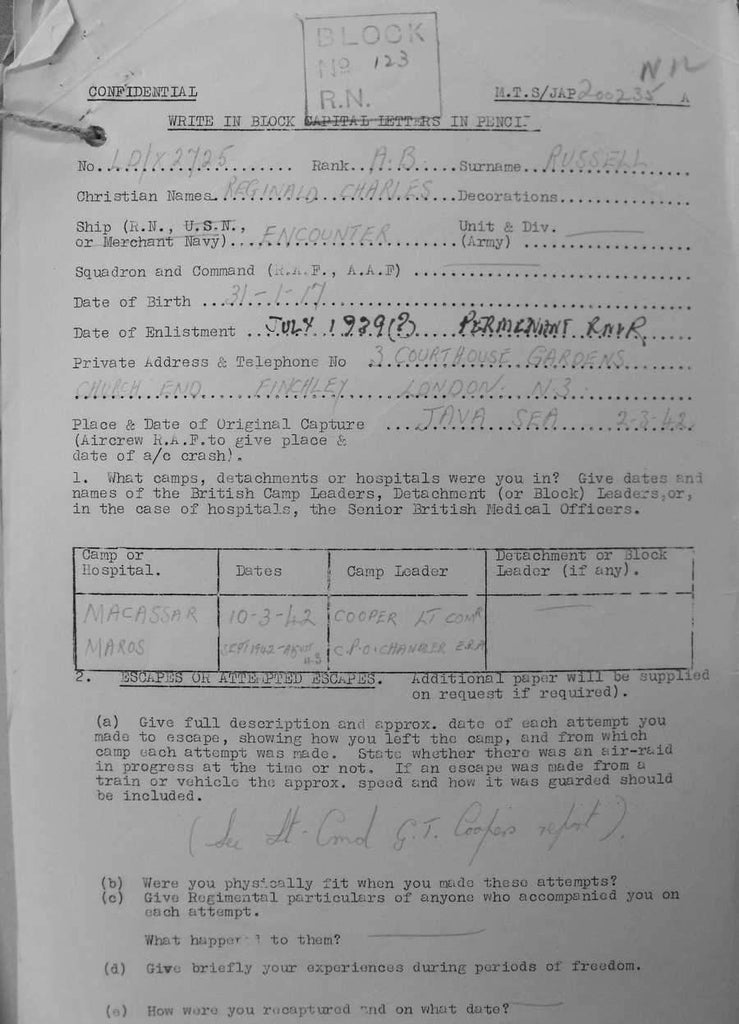 BLOCK
No 123
R.N.
NIL
CONFIDENTIAL M.T.S/JAP 200235 A
WRITE IN BLOCK CAPITAL LETTERS IN PENCI
No. LD/X2725 Rank A.B. Surname RUSSELL
Christian Names REGINALD CHARLES Decorations
Ship (R.N., U.S.N., Unit & Div.
or Merchant Navy) ENCOUNTER (Army)
Squadron and Command (R.A.F., A.A.F)
Date of Birth 31-1-17
Date of Enlistment JULY 1939(?) PERMENANT R.N.V.R.
Private Address & Telephone No 3 COURTHOUSE GARDENS
CHURCH END FINCHLEY LONDON N.3.
Place & Date of Original Capture JAVA SEA 2-3-42
(Aircrew R.A.F.to give place &
date of a/c crash).
1. What camps, detachments or hospitals were you in? Give dates and
names of the British Camp Leaders, Detachment (or Block) Leaders,or,
in the case of hospitals, the Senior British Medical Officers.
Camp or Hospital. Dates Camp Leader Detachment or Block Leader (if any).
MACASSAR 10-3-42 COOPER LT COMR
MAROS SEPT 1942- C.P.O. CHANDLER ERA
2. ESCAPES OR ATTEMPTED ESCAPES. Additional paper will be supplied
on request if required).
(a) Give full description and approx. date of each attempt you
made to escape, showing how you left the camp, and from which
camp each attempt was made. State whether there was an air-raid
in progress at the time or not. If an escape was made from a
train or vehicle the approx. speed and how it was guarded should
be included.
(See Lt-Cmd G.T. Coopers report).
(b) Were you physically fit when you made these attempts?
(c) Give Regimental particulars of anyone who accompanied you on
each attempt.
What happen to them?
(d) Give briefly your experiences during periods of freedom.
(e) How were you recaptured and on what date?